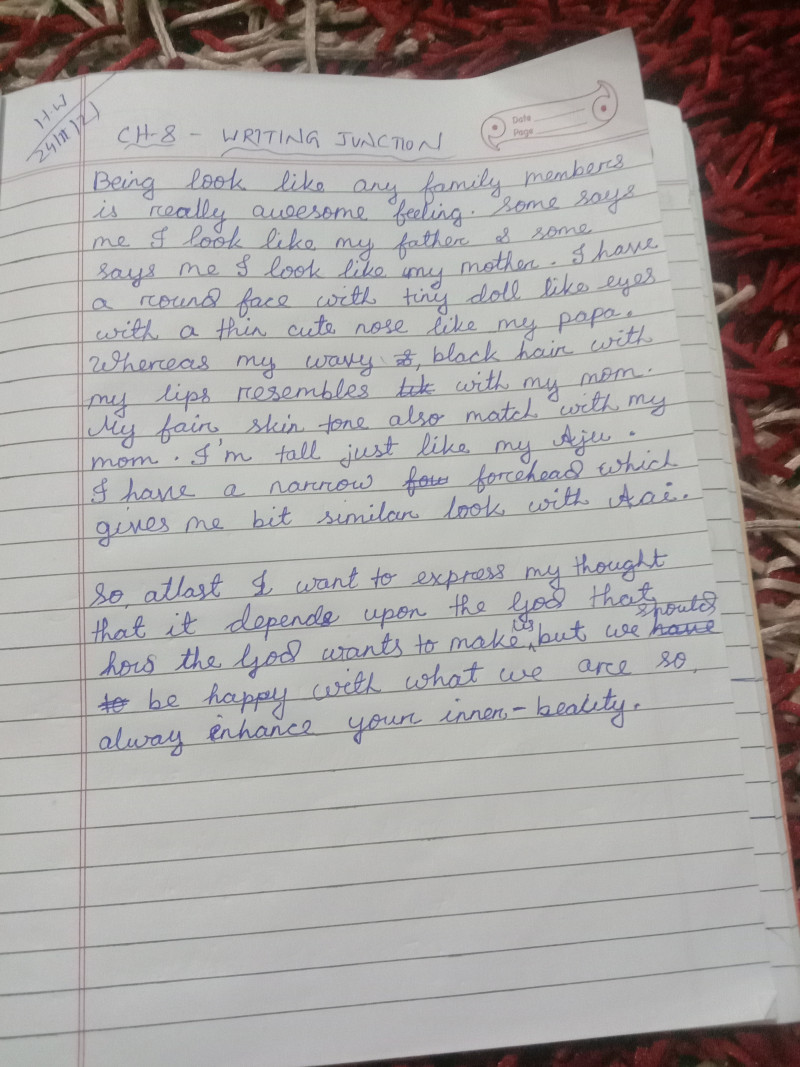 H.W
24/11/21
CH-8 - WRITING JUNCTION
Date
Page
Being look like any family members
is really awesome feeling. Some says
me I look like my father & some
says me I look like my mother. I have
a round face with tiny doll like eyes
with a thin cute nose like my papa.
Whereas my wavy, black hair with
my lips resembles with my mom.
My fair skin tone also match with my
mom. I'm tall just like my Aju.
I have a narrow forehead which
gives me bit similar look with Aai.
So, atlast I want to express my thought
that it depends upon the God that
how the God wants to make us, but we should
be happy with what we are so,
alway enhance your inner-beauity.